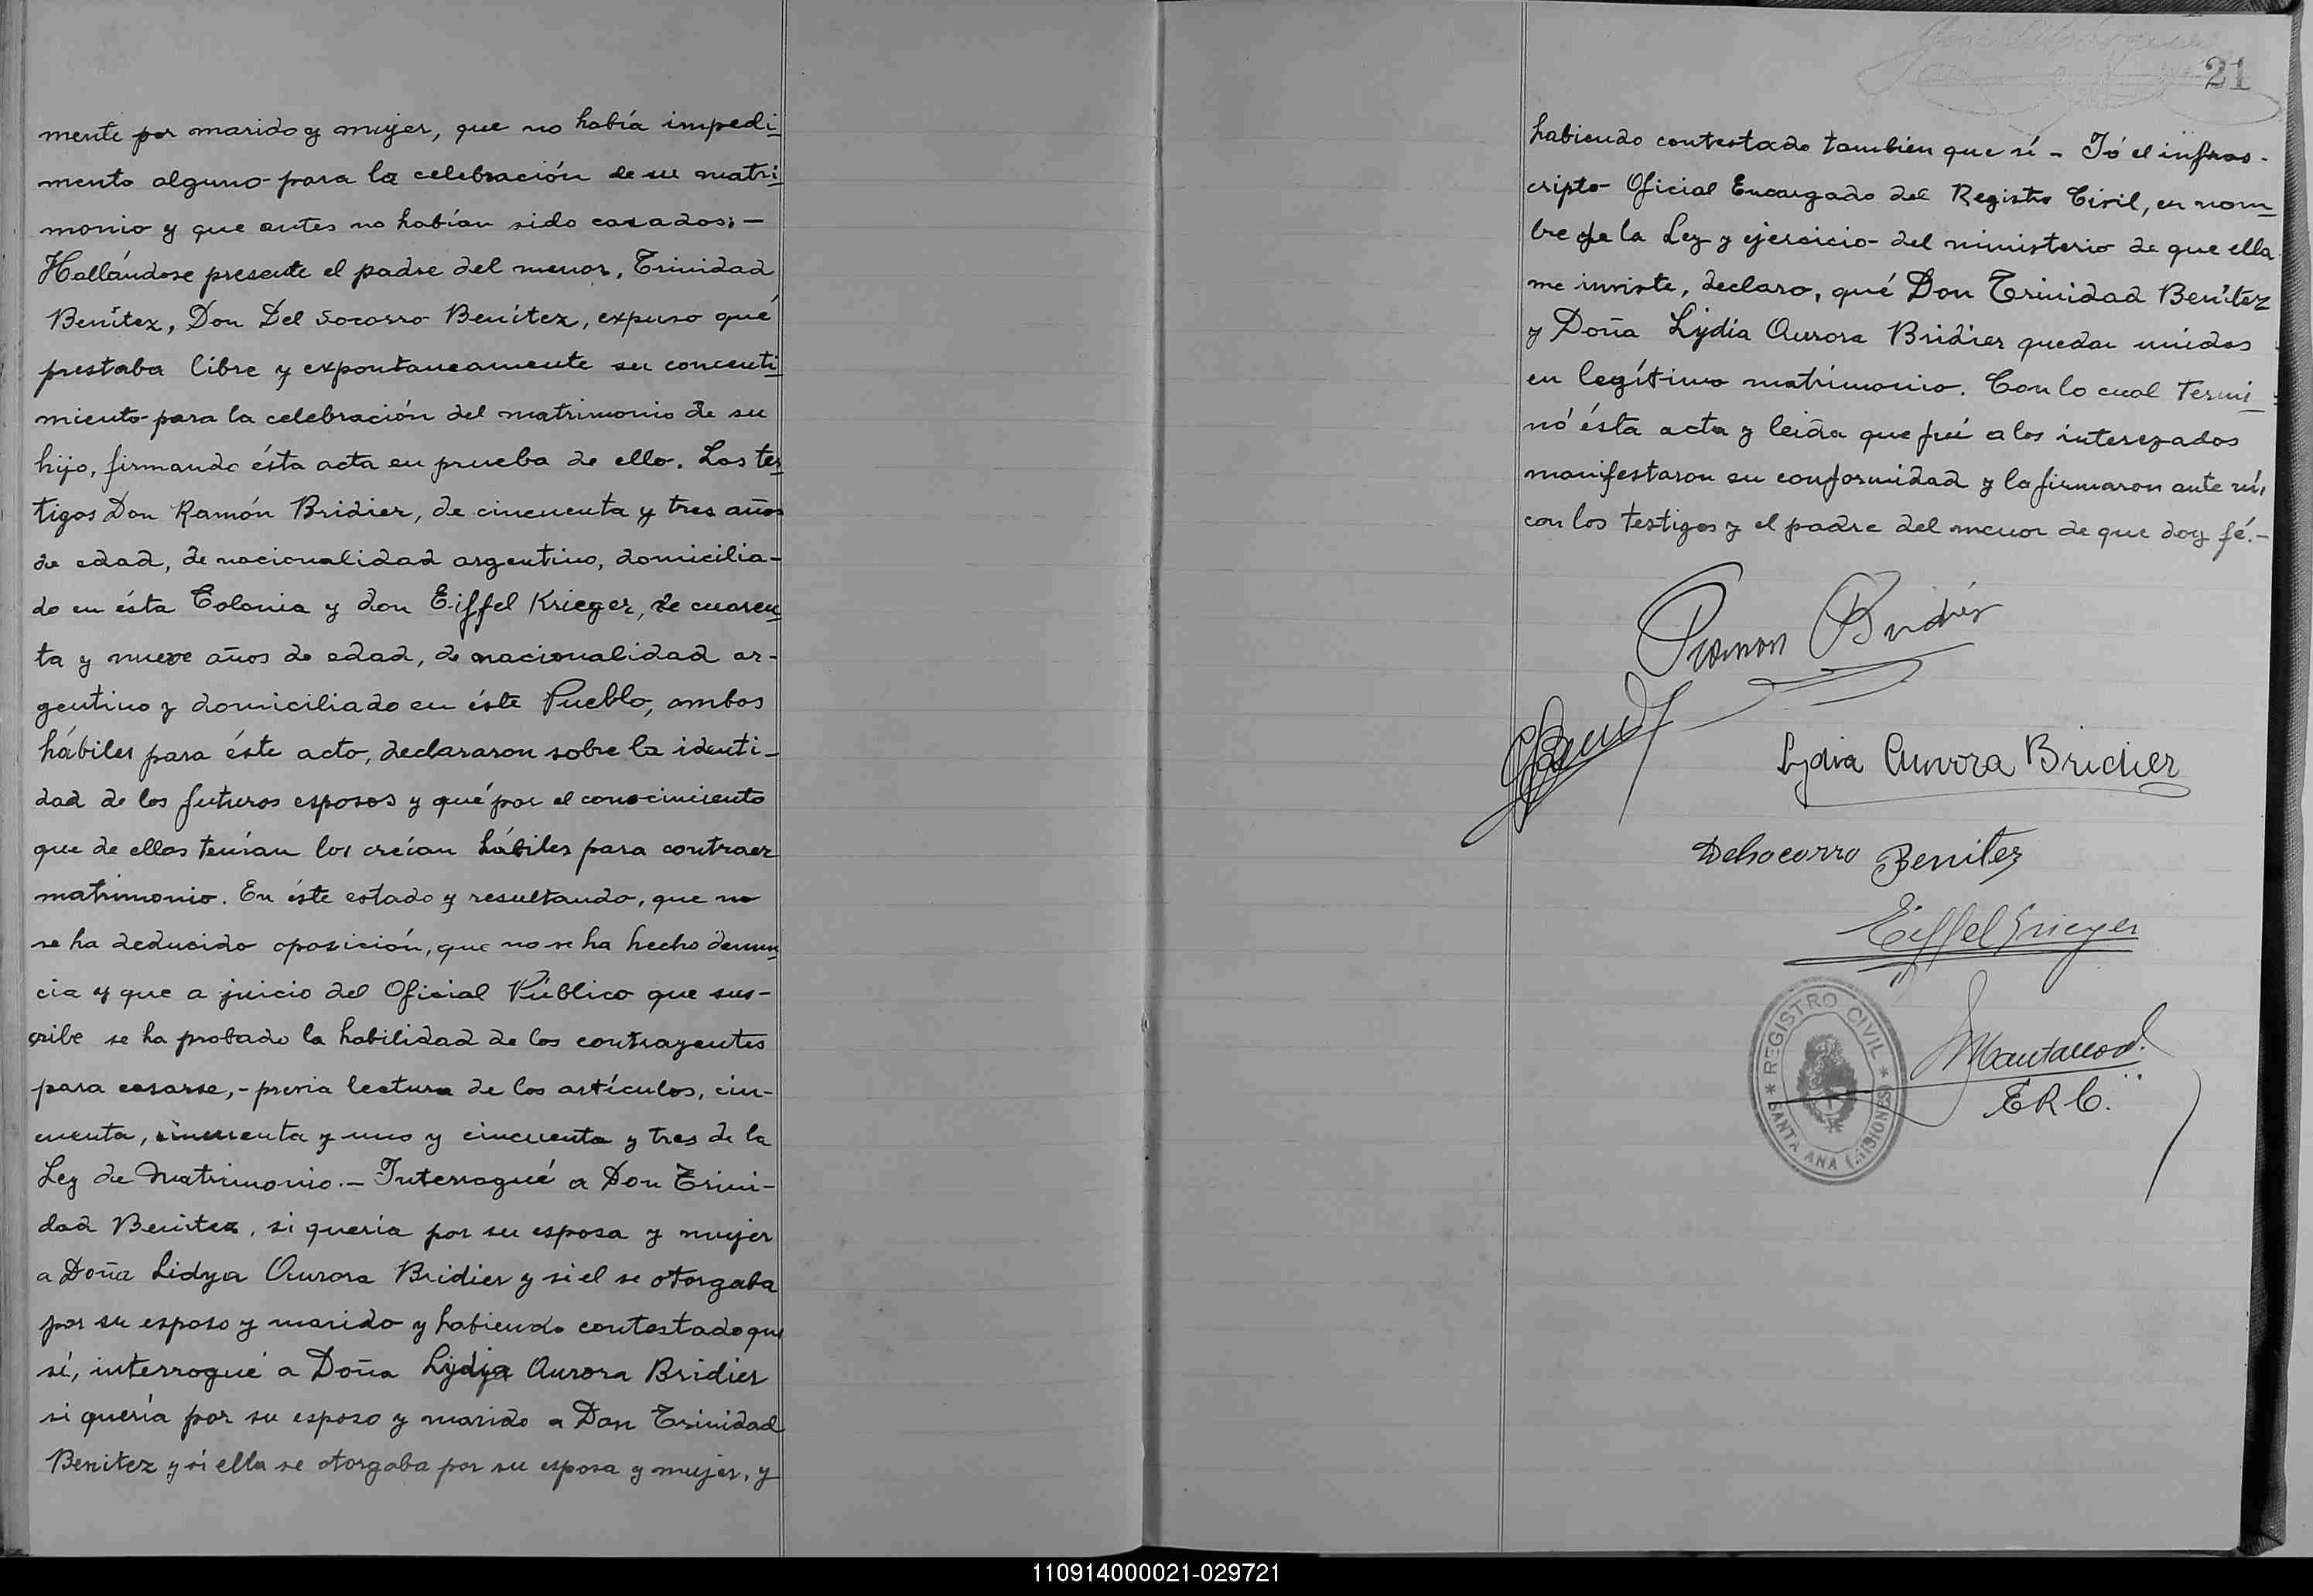 mente por marido y mujer, que no había impedi-
mento alguno para la celebración de su matri-
monio y que antes no habían sido casados; —
Hallándose presente el padre del menor, Trinidad
Benítez, Don Del Socorro Benítez, expuso qué
prestaba libre y expontaneamente su concenti-
miento para la celebración del matrimonio de su
hijo, firmando ésta acta en prueba de ello. Los tes-
tigos Don Ramón Bridier, de cincuenta y tres años
de edad, de nacionalidad argentino, domicilia-
do en ésta Colonia y don Eiffel Krieger, de cuaren-
ta y nueve años de edad, de nacionalidad ar-
gentino y domiciliado en éste Pueblo, ambos
hábiles para éste acto, declararon sobre la identi-
dad de los futuros esposos y qué por el conocimiento
que de ellos tenían los creían hábiles para contraer
matrimonio. En éste estado y resultando, que no
se ha deducido oposición, que no se ha hecho denun-
cia y que a juicio del Oficial Público que sus-
cribe se ha probado la habilidad de los contrayentes
para casarse, - previa lectura de los artículos, cin-
cuenta, cincuenta y uno y cincuenta y tres de la
Ley de Matrimonio. — Interrogué a Don Trini-
dad Benitez, si quería por su esposa y mujer
a Doña Lidya Aurora Bridier y si el se otorgaba
por su esposo y marido y habiendo contestado que
sí, interrogué a Doña Lydja Aurora Bridier
si quería por su esposo y marido a Don Trinidad
Benitez y si ella se otorgaba por su esposa y mujer, y
21
habiendo contestado tambien que sí - Yó el infras-
cripto Oficial Encargado del Registro Civil, en nom-
bre de la Ley y ejercicio del ministerio de que ella
me inviste, declaro, qué Don Trinidad Benítez
y Doña Lydia Aurora Bridier quedan unidos
en legítimo matrimonio. Con lo cual termi-
nó ésta acta y leida que fué a los interezados
manifestaron su conformidad y la firmaron ante mí,
con los testigos y el padre del menor de que doy fé.-
Ramon Bridier
Lydia Aurora Bridier
Delsocorro Benitez
Eiffel Krieger
E R C.
REGISTRO CIVIL
* SANTA ANA (MISIONES) *
110914000021-029721